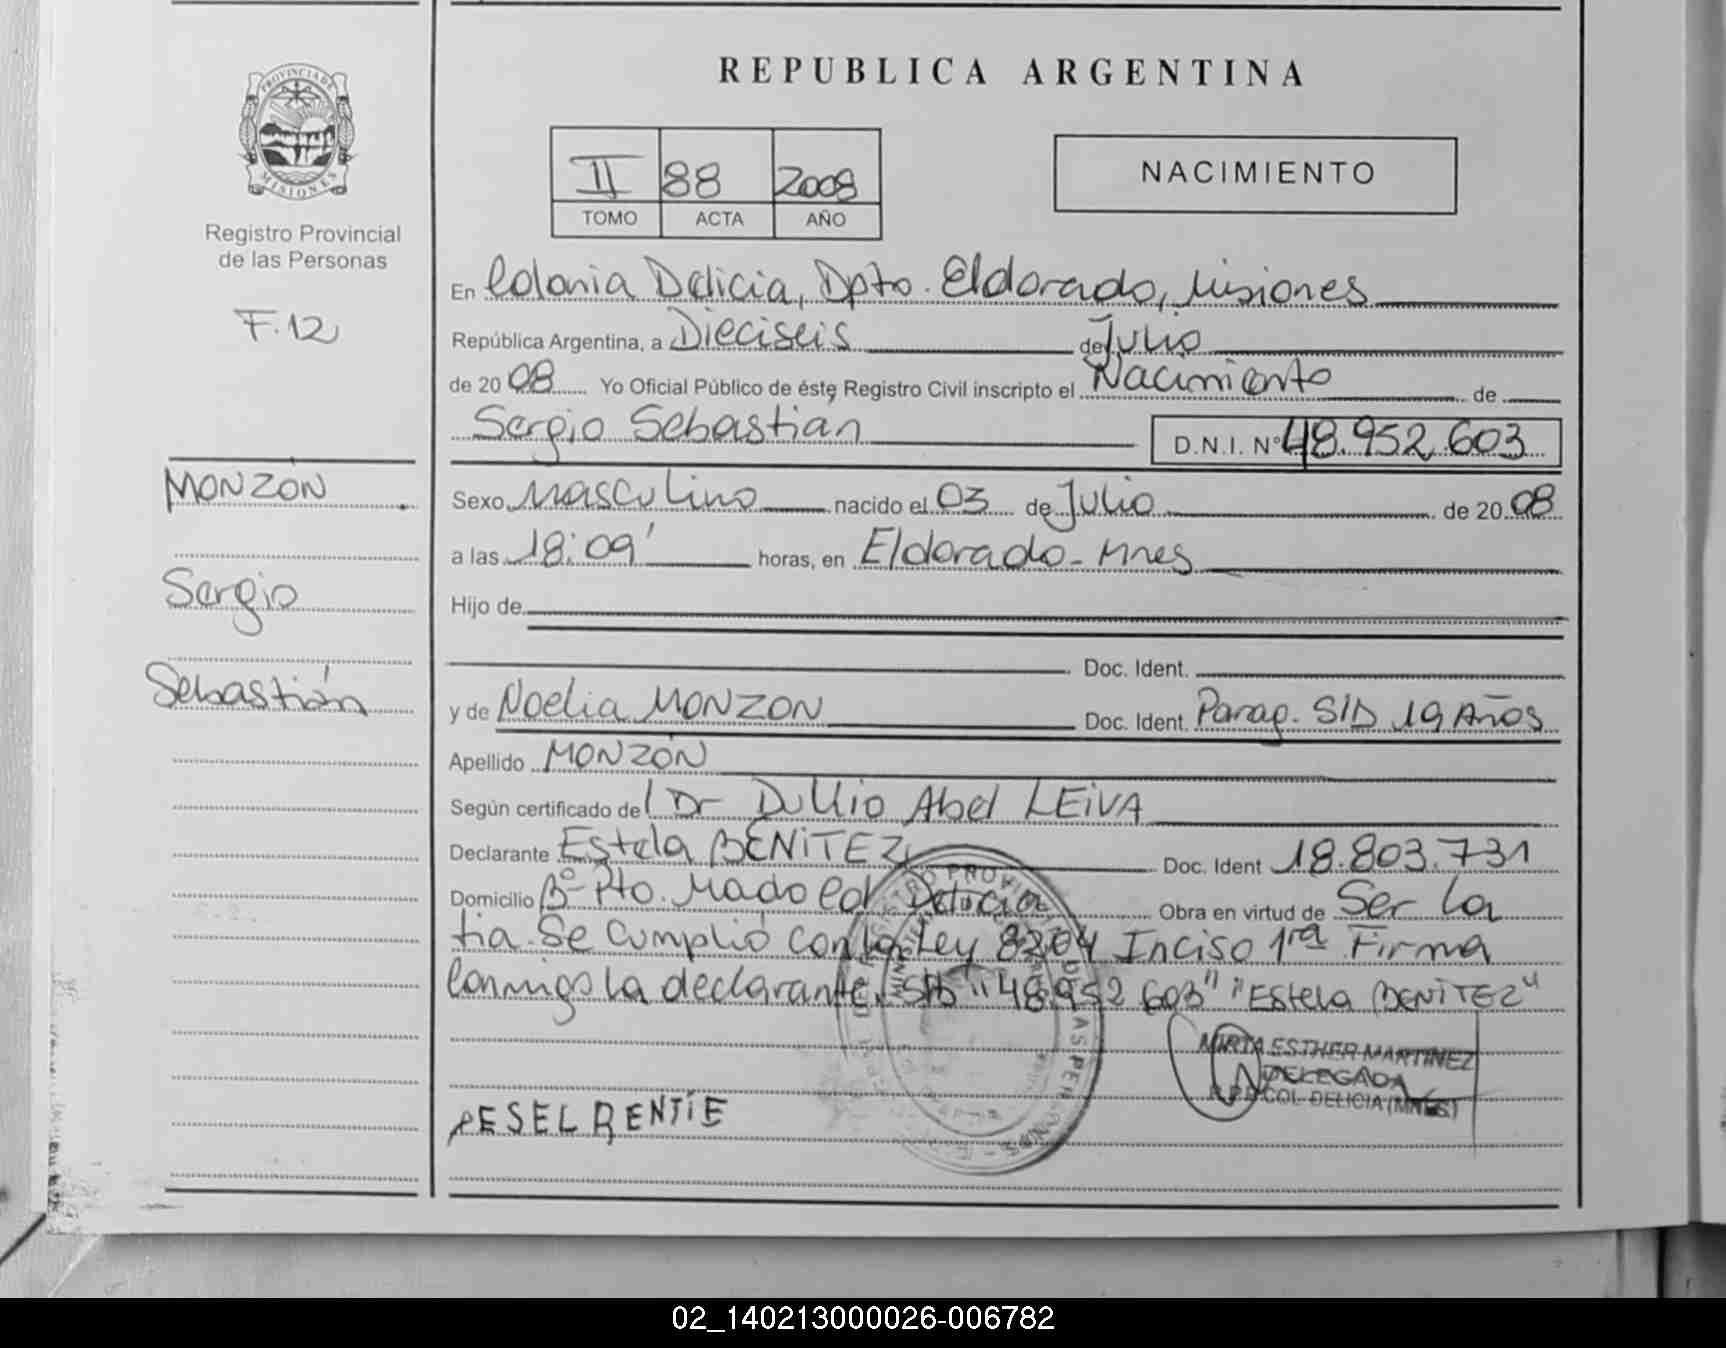 REPUBLICA ARGENTINA
PROVINCIA DE
MISIONES
Registro Provincial
de las Personas
F.12
II 88 2008
TOMO ACTA AÑO
NACIMIENTO
En Colonia Delicia, Dpto. Eldorado, Misiones
República Argentina, a Dieciseis de Julio
de 20 08 Yo Oficial Público de éste Registro Civil inscripto el Nacimiento de
Sergio Sebastian D.N.I. Nº 48.952.603
MONZÓN
Sergio
Sebastián
Sexo Masculino nacido el 03 de Julio de 20 08
a las 18:09' horas, en Eldorado - Mnes
Hijo de
Doc. Ident.
y de Noelia MONZON Doc. Ident. Parag. S/D 19 Años
Apellido MONZÓN
Según certificado del Dr Dullio Abel LEIVA
Declarante Estela BENITEZ Doc. Ident 18.803.731
Domicilio Bº Pto. Mado Col Delicia Obra en virtud de Ser la
tia. Se cumplió con la Ley 8204 Inciso 1ra Firma
Conmigo la declarante. S/b "48.952.603" "Estela BENITEZ"
MIRTA ESTHER MARTINEZ
DELEGADA
R.P.P. COL. DELICIA (MNES)